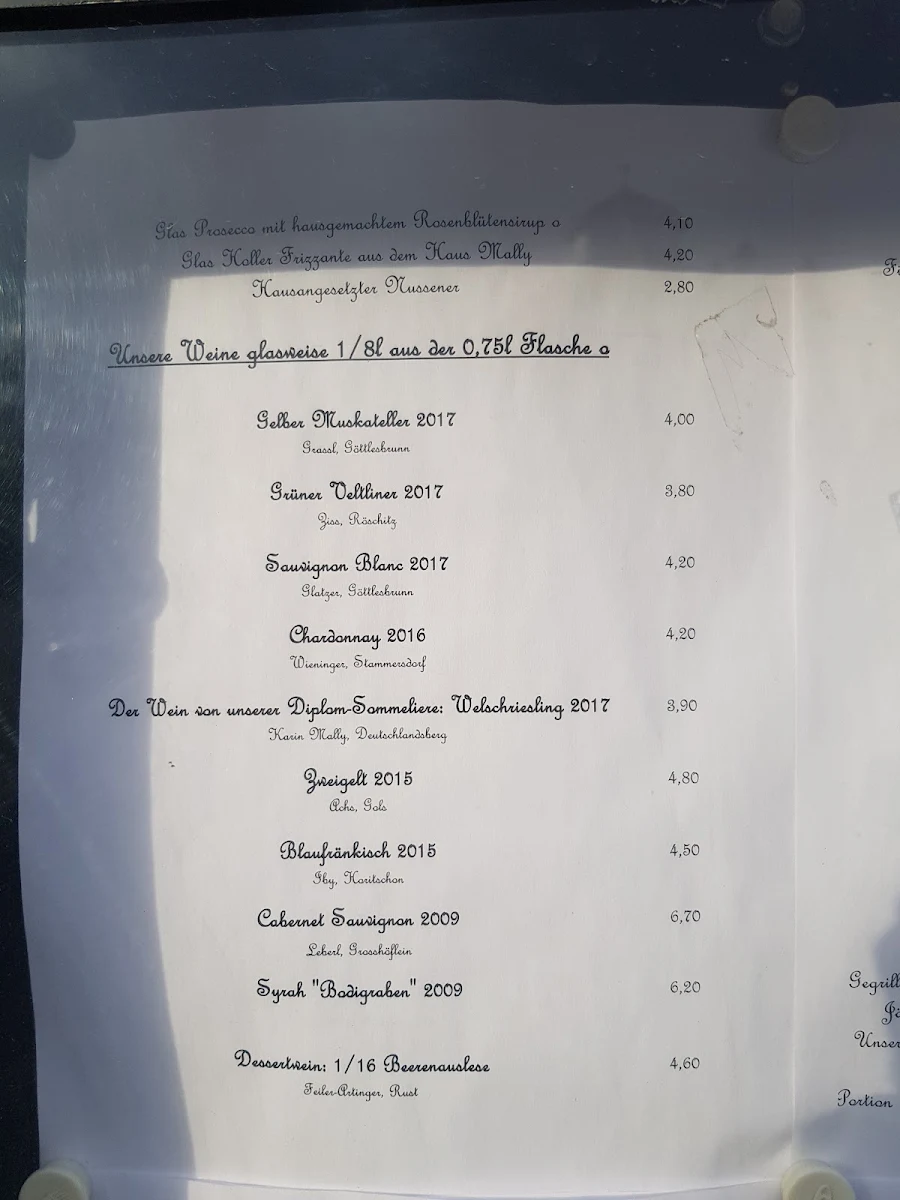 Glas Prosecco mit hausgemachtem Rosenblütensirup o 4,10
Glas Holler Frizzante aus dem Haus Mally 4,20
Hausangesetzter Nussener 2,80
Unsere Weine glasweise 1/8l aus der 0,75l Flasche o
Gelber Muskateller 2017 4,00
Grassl, Göttlesbrunn
Grüner Veltliner 2017 3,80
Ziss, Röschitz
Sauvignon Blanc 2017 4,20
Glatzer, Göttlesbrunn
Chardonnay 2016 4,20
Wieninger, Stammersdorf
Der Wein von unserer Diplom-Sommeliere: Welschriesling 2017 3,90
Karin Mally, Deutschlandsberg
Zweigelt 2015 4,80
Achs, Gols
Blaufränkisch 2015 4,50
Iby, Horitschon
Cabernet Sauvignon 2009 6,70
Leberl, Grosshöflein
Syrah "Bodigraben" 2009 6,20
Dessertwein: 1/16 Beerenauslese 4,60
Feiler-Artinger, Rust
Gegrill
Unser
Portion